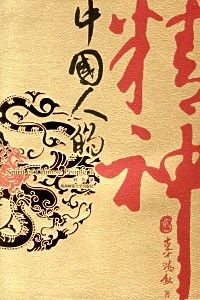 中國人的
精神
Spirit of Chinese People
辜鴻銘 著